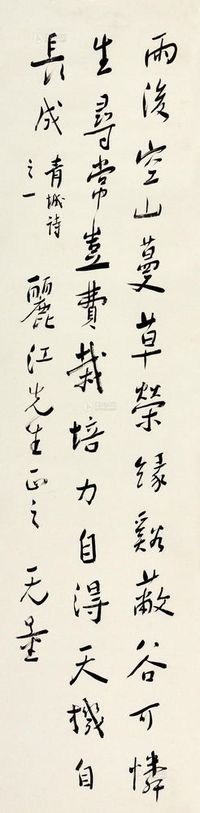 雨後空山蔓草榮緣谿蔽谷可憐
生尋常豈費栽培力自得天機自
長成
青城詩
之一
麗江先生正之 无量